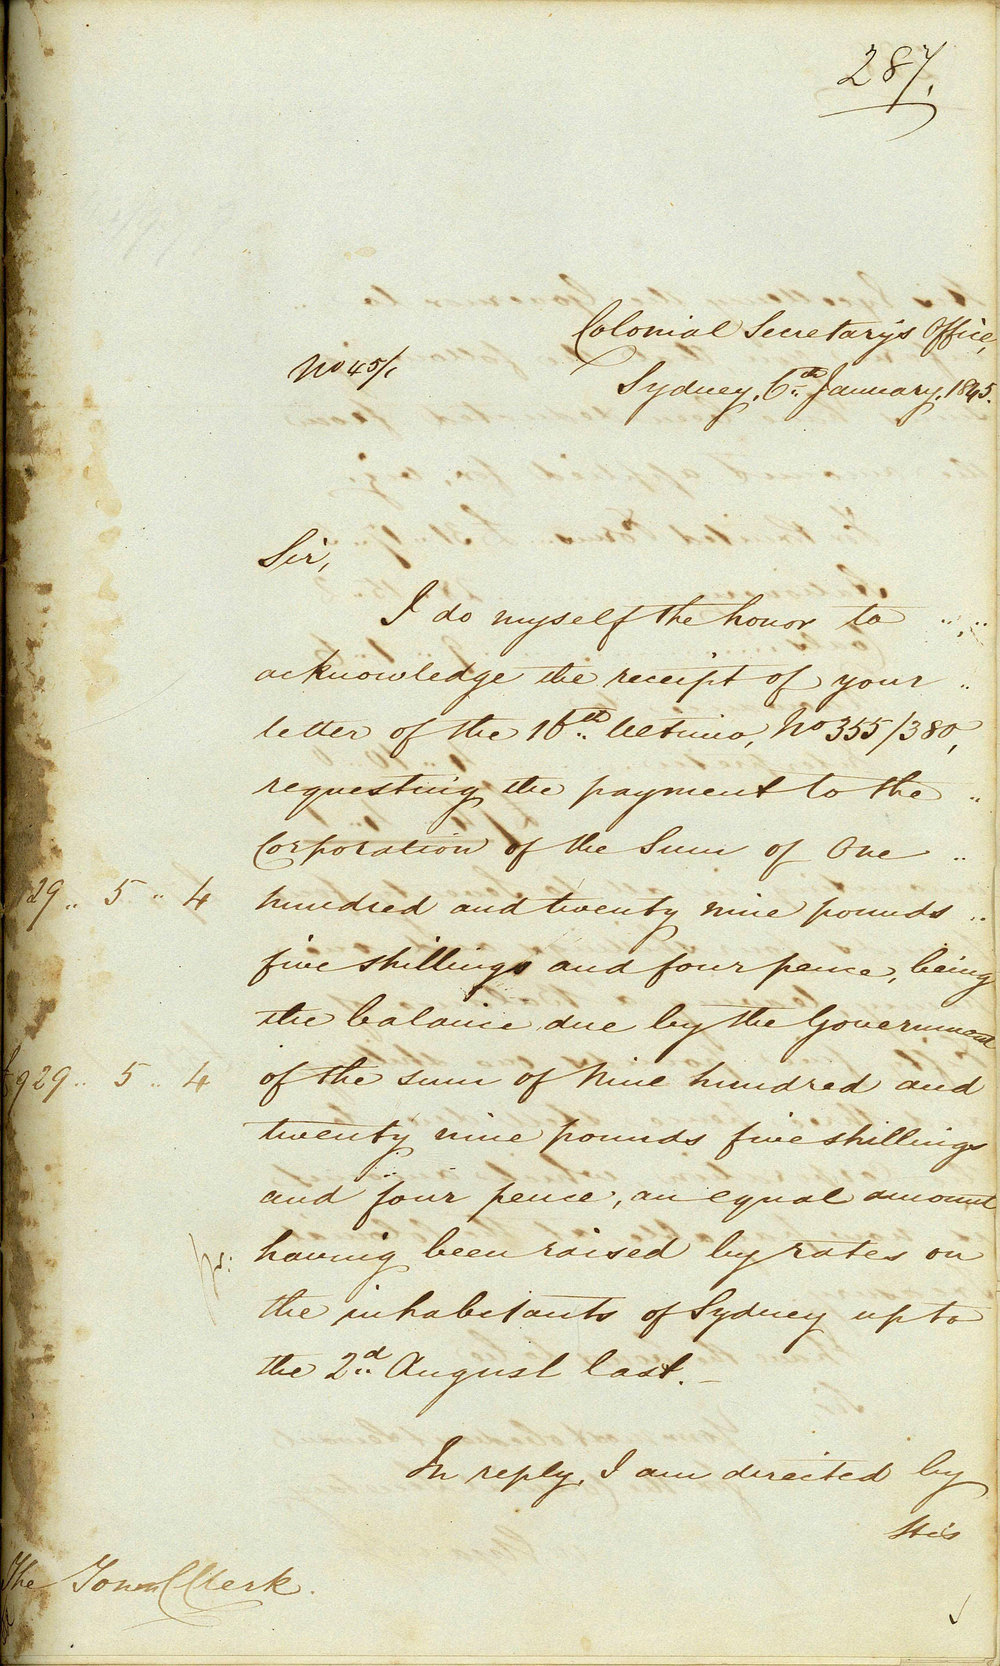 287.
Colonial Secretary's Office,
No 45/1
Sydney, 6th January, 1845.
Sir,
I do myself the honor to
acknowledge the receipt of your
letter of the 16th Ultimo, No 355/380,
requesting the payment to the
Corporation of the Sum of One
29 .. 5 .. 4 hundred and twenty nine pounds
five shillings and four pence, being
the balance due by the Government
£929 .. 5 .. 4 of the sum of Nine hundred and
twenty nine pounds five shillings
and four pence, an equal amount
having been raised by rates on
the inhabitants of Sydney up to
the 2d August last.
In reply, I am directed by
His
The Town Clerk.